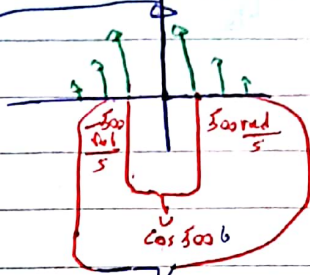 500 rad/s
500 rad/s
cos 500 t